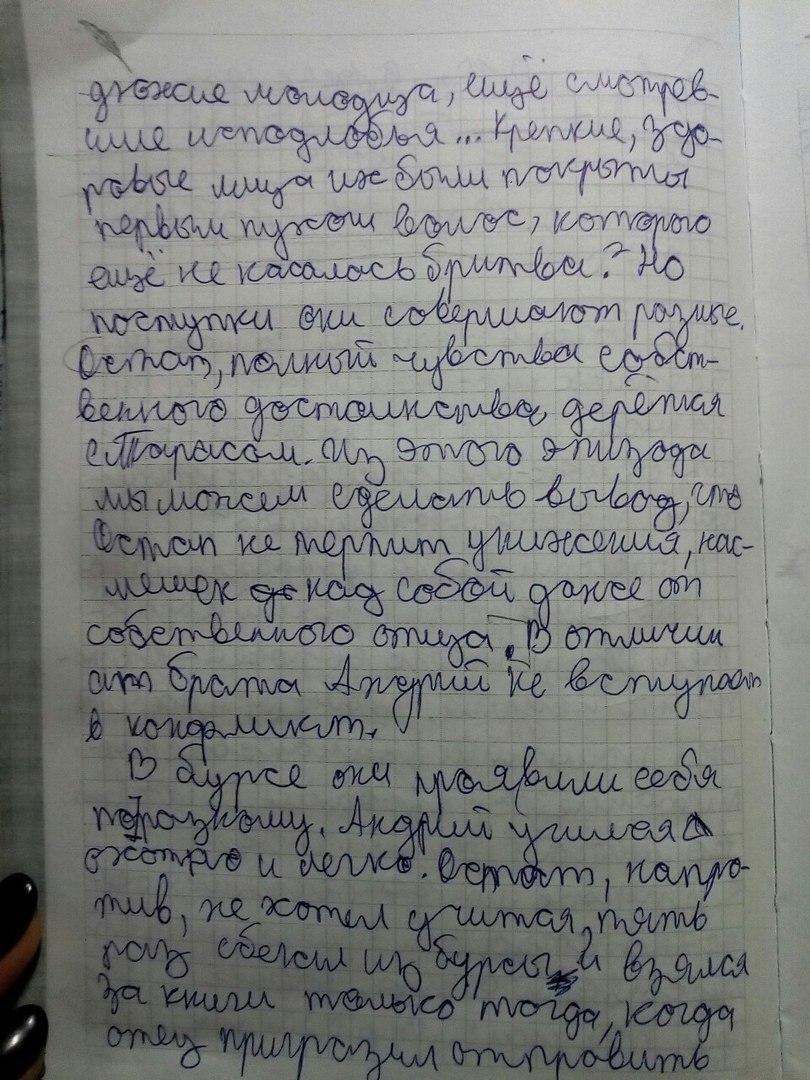 дюжие молодца, ещё смотрев-
шие исподлобья... Крепкие, здо-
ровые лица их были покрыты
первым пухом волос, которого
ещё не касалось бритва? Но
поступки они совершают разные.
Остап, полный чувства собст-
венного достоинства, дерётся
с Тарасом. Из этого эпизода
мы можем сделать вывод, что
Остап не терпит унижения, нас-
мешек над собой даже от
собственного отца. В отличии
от брата Андрий не вступает
в конфликт.
В бурсе они проявили себя
по разному. Андрий учился
охотно и легко. Остап, напро-
тив, не хотел учится, пять
раз сбежал из бурсы и взялся
за книги только тогда, когда
отец пригрозил отправить